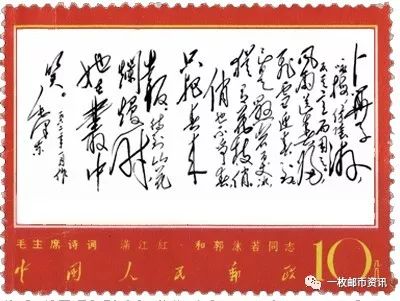 卜算子
风雨送春归
飞雪迎春到已
是悬崖百丈冰
犹有花枝俏
俏也不争春
只把春来
报待到山花
烂熳时
她在丛中
笑
毛泽东
毛主席诗词 满江红·和郭沫若同志
中国人民邮政
10分
一枚邮市资讯